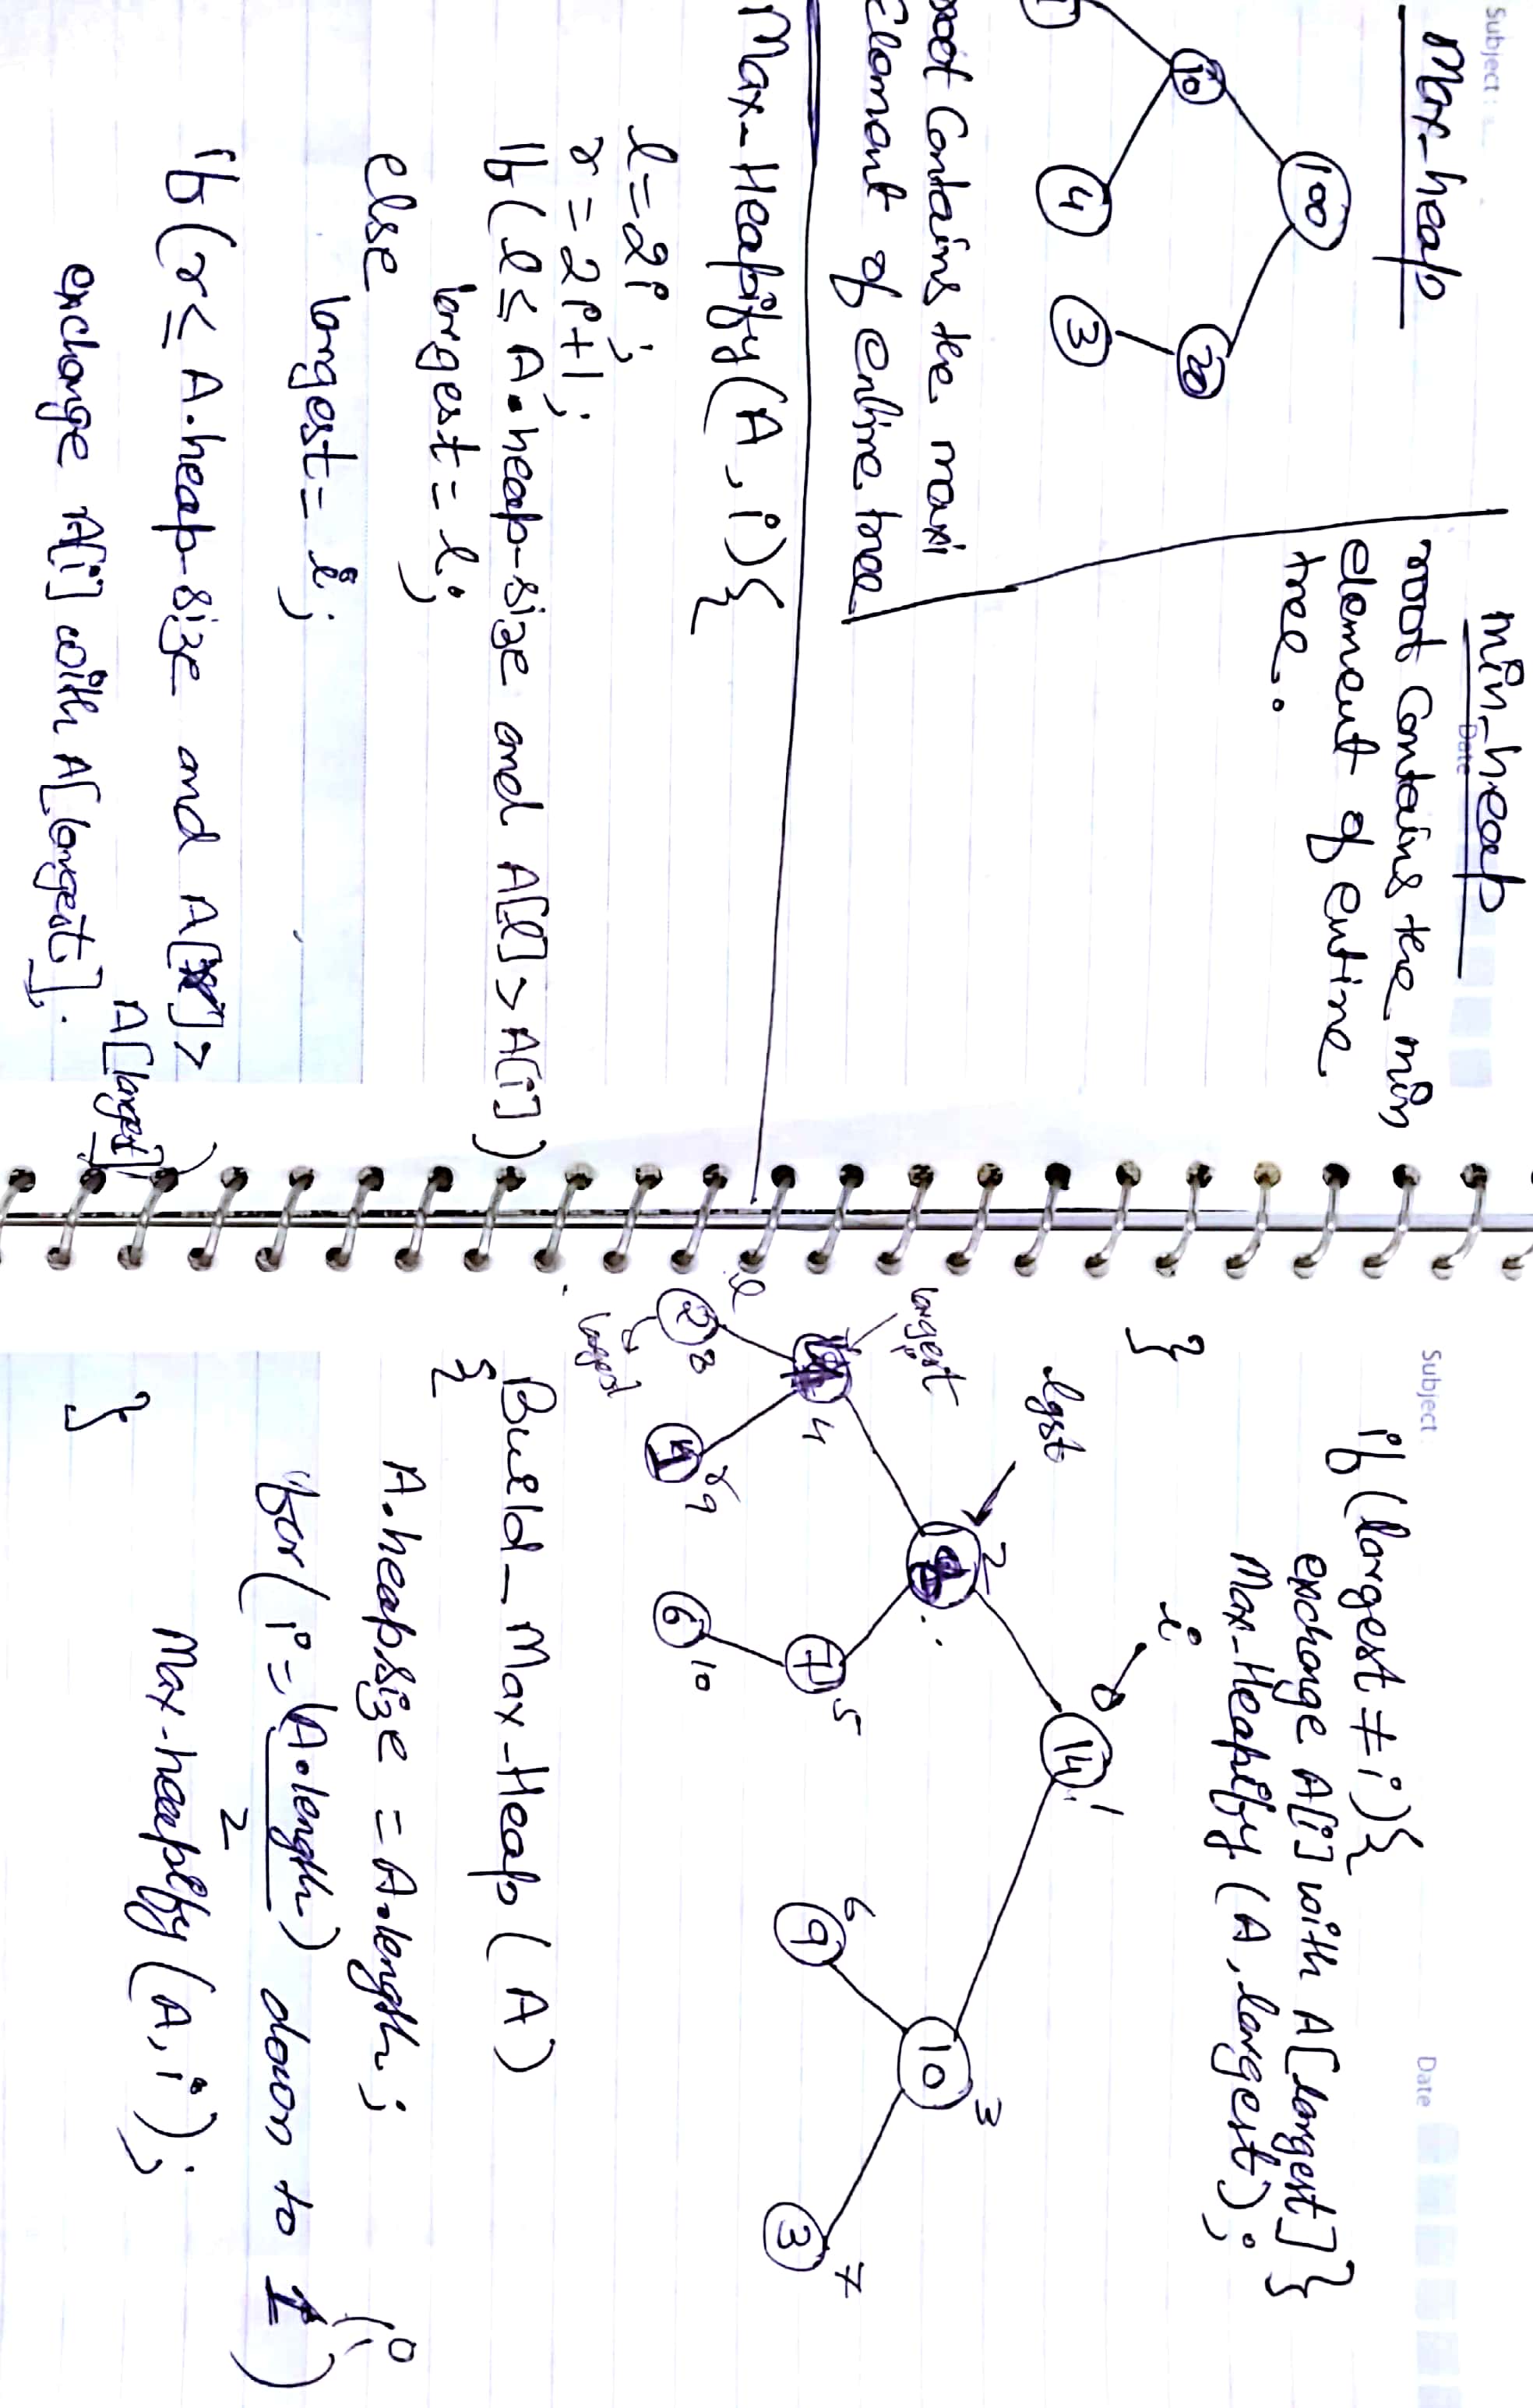 Subject :
Date
Max-heap
100
10
20
4
3
root Contains the maxi
element of entire tree
min-heap
root Contains the min
element of entire
tree.
Max-Heapify(A, i){
l=2i;
r=2i+1;
if(l≤ A.heap-size and A[l]>A[i])
largest=l;
else
largest= i;
if(r≤ A.heap-size and A[r]>
A[largest])
exchange A[i] with A[largest];
Subject
Date
if(largest ≠ i){
exchange A[i] with A[largest]
Max-Heapify(A, largest);
}
}
i
14
1
lgst
2
10
3
largest
4
7
5
9
6
3
7
l
2
8
r
9
6
10
largest
Build-Max-Heap(A)
{
A.heapsize = A.length;
for(i=(A.length) down to 1)
2
0
Max-heapify(A, i);
}